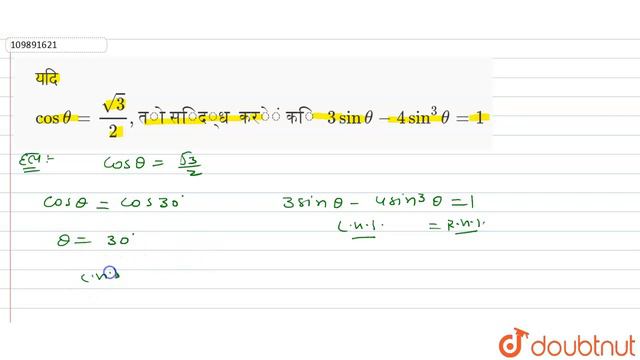 109891621
यदि
cosθ = √3/2, तो सिद्ध करें कि 3 sin θ − 4 sin³ θ = 1
हल :-
cosθ = √3/2
cosθ = cos30°
3sinθ - 4sin³θ = 1
L.H.S. = R.H.S.
θ = 30°
L.H.S
doubtnut